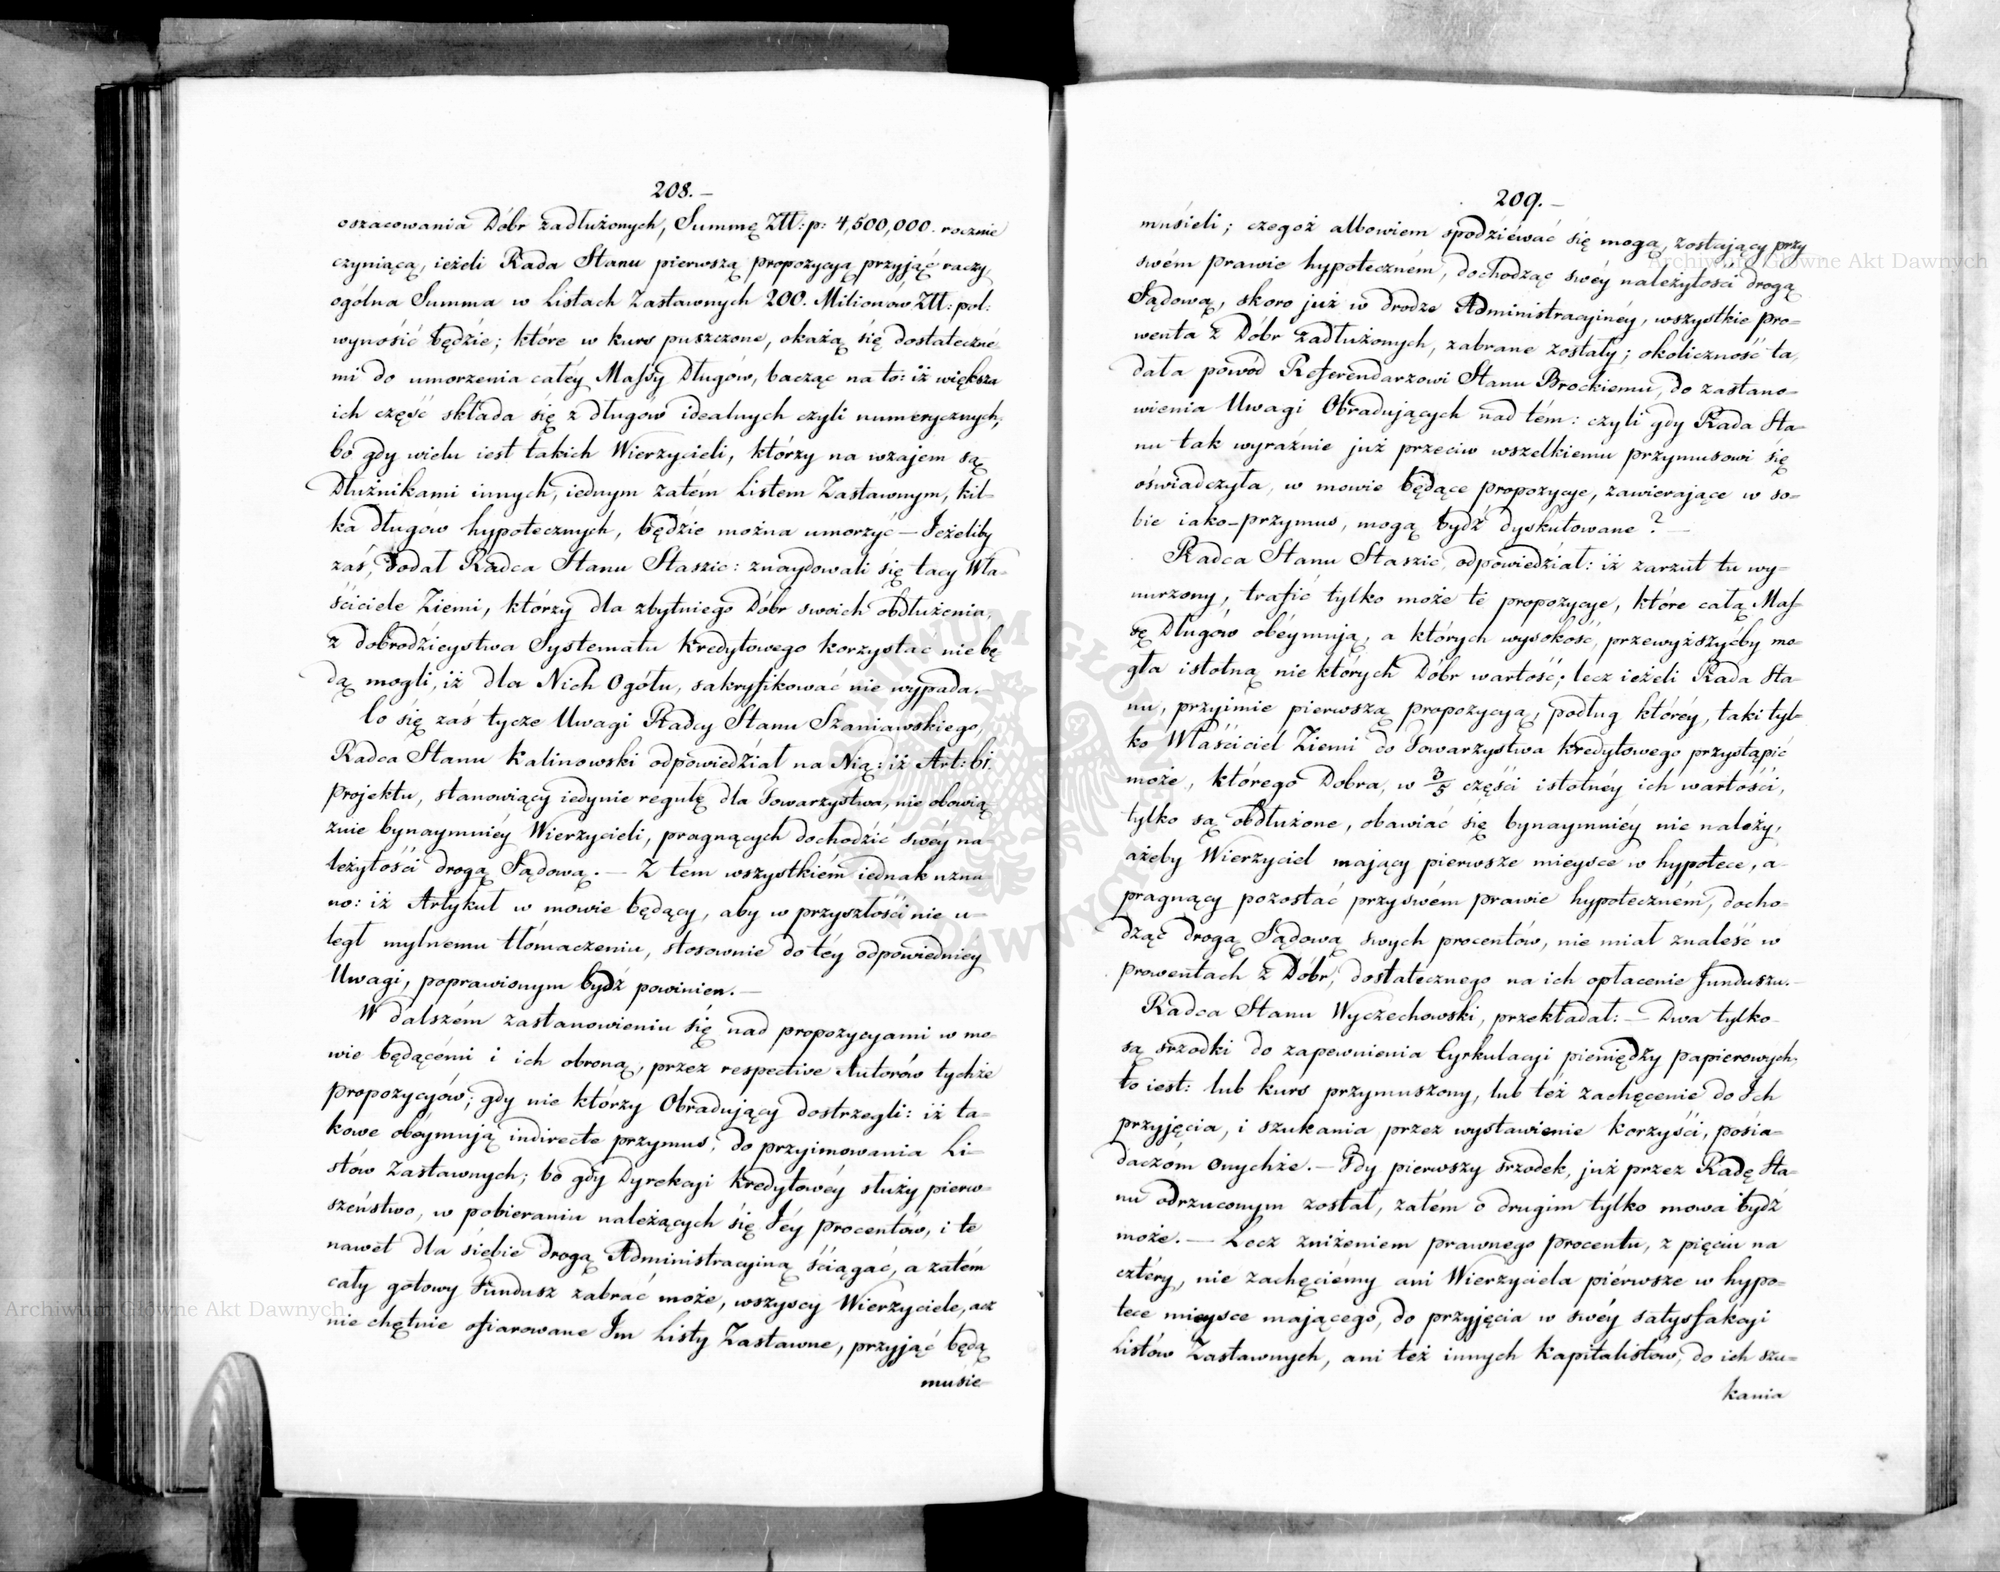 208.–
oszacowania Dóbr zadłużonych, Summę Złł: p: 4,500,000. rocznie
czyniącą, ieżeli Rada Stanu pierwszą propozycyą przyjąć raczy,
ogólna Summa w Listach Zastawnych 200. Milionow Złł: pol:
wynosić będzie; które w kurs puszczone, okażą się dostateczné-
mi do umorzenia całéy Massy Długów, bacząc na to: iż większa
ich część składa się z długow idealnych czyli numerycznych,
bo gdy wielu iest takich Wierzycieli, którzy na wzajem są
Dłużnikami innych, iednym zatém Listem Zastawnym, kil-
ka długów hypotecznych, będzie można umorzyć – Jeżeliby
zaś, dodał Radca Stanu Staszic: znaydowali się tacy Wła-
ściciele Ziemi, którzy dla zbytniego Dóbr swoich obdłużenia,
z dobrodzieystwa Systematu Kredytowego korzystać nie bę
dą mogli, iż dla Nich Ogółu, sakryfikować nie wypada.–
Co się zaś tycze Uwagi Radcy Stanu Szaniawskiego,
Radca Stanu Kalinowski odpowiedział na Nią: iż Art: 61.
Projektu, stanowiący iedynie regułę dla Towarzystwa, nie obowią
znie bynaymniéy Wierzycieli, pragnących dochodzić swéy na-
leżytości drogą Sądową. – Z tem wszystkiém iednak uzna
no: iż Artykuł w mowie będący, aby w przyszłości nie u-
legł mylnemu tłómaczeniu, stosownie do téy odpowiedniéy
Uwagi, poprawionym bydź powinien. –
W dalszém zastanowieniu się nad propozycyami w mo-
wie będącémi i ich obroną, przez respective Autorów tychże
propozycyów; gdy nie którzy Obradujący dostrzegli: iż ta-
kowe obeymują indirecte przymus, do przyimowania Li-
stów Zastawnych; bo gdy Dyrekcyi Kredytowéy służy pierw-
szeństwo, w pobieraniu należących się Jéy procentów, i te
nawet dla siebie drogą Administracyiną ściągać, a zatém
cały gotowy Fundusz zabrać może, wszyscy Wierzyciele, acz
nie chętnie ofiarowane Im Listy Zastawne, przyjąć będą
musie-
209.–
musieli; czegoż albowiem spodziéwać się mogą, zostający przy
swém prawie hypoteczném, dochodząc swéy należytości drogą
Sądową, skoro już w drodze Administracyinéy, wszystkie pro-
wenta z Dóbr zadłużonych, zabrane zostały; okoliczność ta,
dała powód Referendarzowi Stanu Brockiemu, do zastano-
wienia Uwagi Obradujących nad tém: czyli gdy Rada Sta-
nu tak wyraźnie już przeciw wszelkiemu przymusowi się
oświadczyła, w mowie będące propozycye, zawierające w so-
bie iako-przymus, mogą bydź dyskutowane? –
Radca Stanu Staszic, odpowiedział: iż zarzut tu wy-
nurzony, trafić tylko może te propozycye, które całą Mas-
sę Długów obéymują, a których wysokość, przewyższyćby mo-
gła istotną nie których Dóbr wartość; lecz ieżeli Rada Sta-
nu, przyimie pierwszą propozycyą, podług któréy, taki tyl-
ko Właściciel Ziemi do Towarzystwa Kredytowego przystąpić
może, którego Dobra, w 3/5 części istotnéy ich wartości,
tylko są obdłużone, obawiać się bynaymniéy nie należy,
ażeby Wierzyciel mający pierwsze mieysce w hypotece, a
pragnący pozostać przy swém prawie hypoteczném, docho-
dząc drogą Sądową swych procentów, nie miał znaleść w
prowentach z Dóbr, dostatecznego na ich opłacenie funduszu.–
Radca Stanu Wyczechowski, przekładał: – Dwa tylko
są srzodki do zapewnienia Cyrkulacyi pieniędzy papierowych,
to iest: lub kurs przymuszony, lub też zachęcenie do Ich
przyjęcia, i szukania przez wystawienie korzyści, posia-
daczóm onychże. – Gdy pierwszy srzodek, już przez Radę Sta-
nu odrzuconym został, zatém o drugim tylko mowa bydź
może. – Lecz zniżeniem prawnego procentu, z pięciu na
cztéry, nie zachęciémy ani Wierzyciela piérwsze w hypo-
tece mieysce mającego, do przyjęcia w swéy satysfakcyi
Listów Zastawnych, ani też innych kapitalistow, do ich szu-
kania
Archiwum Główne Akt Dawnych
Archiwum Główne Akt Dawnych
ARCHIWUM GŁÓWNE AKT DAWNYCH